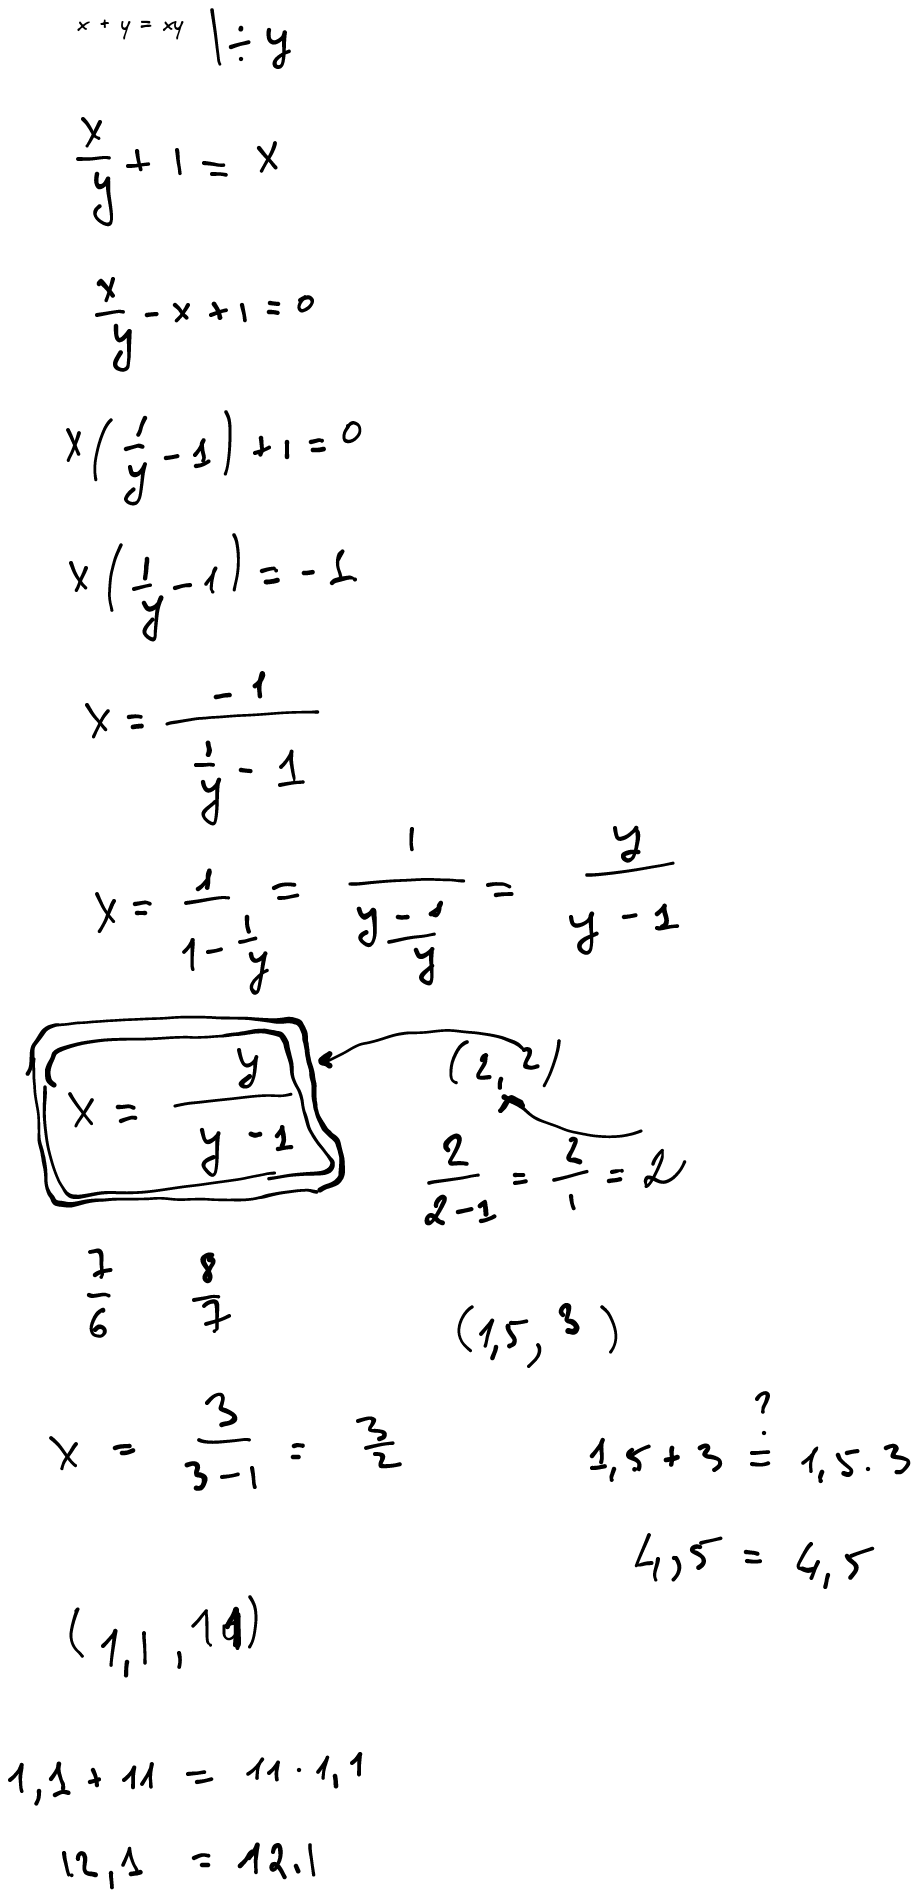 x + y = xy | ÷ y
x/y + 1 = x
x/y - x + 1 = 0
x(1/y - 1) + 1 = 0
x(1/y - 1) = -1
x = -1/(1/y - 1)
x = 1/(1 - 1/y) = 1/((y - 1)/y) = y/(y - 1)
x = y/(y - 1)
(2, 2)
2/(2-1) = 2/1 = 2
7/6 8/7
(1,5, 3)
x = 3/(3-1) = 3/2
1,5 + 3 ?= 1,5 . 3
4,5 = 4,5
(1,1, 11)
1,1 + 11 = 11 · 1,1
12,1 = 12.1